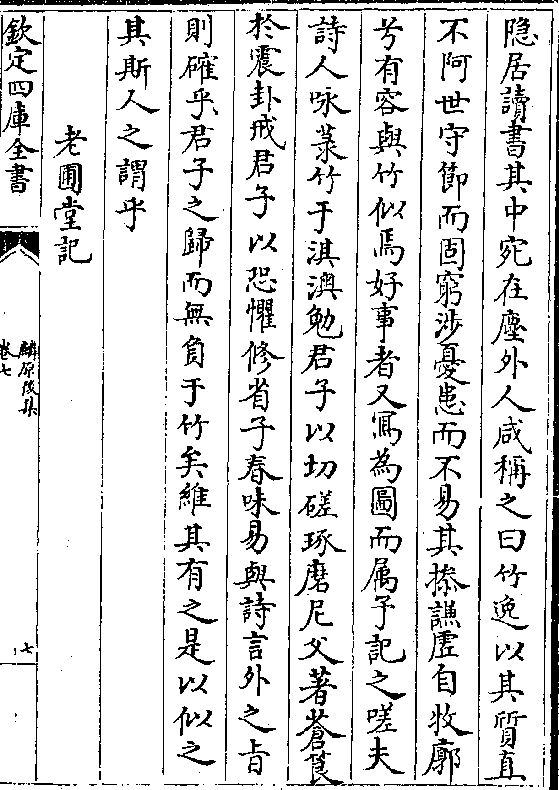 隠居讀書其中宛在塵外人咸稱之曰竹逸以其質直
不阿世守節而固窮渉憂患而不易其操謙虛自牧廓
兮有容與竹似焉好事者又寫為圖而属予記之嗟夫
詩人咏菉竹于淇澳勉君子以切磋琢磨尼父著蒼筤
於震卦戒君子以恐懼修省子春味易與詩言外之旨
則確乎君子之歸而無負于竹矣維其有之是以似之
其斯人之謂乎
老圃堂記
欽定四庫全書
麟原後集
卷七
七